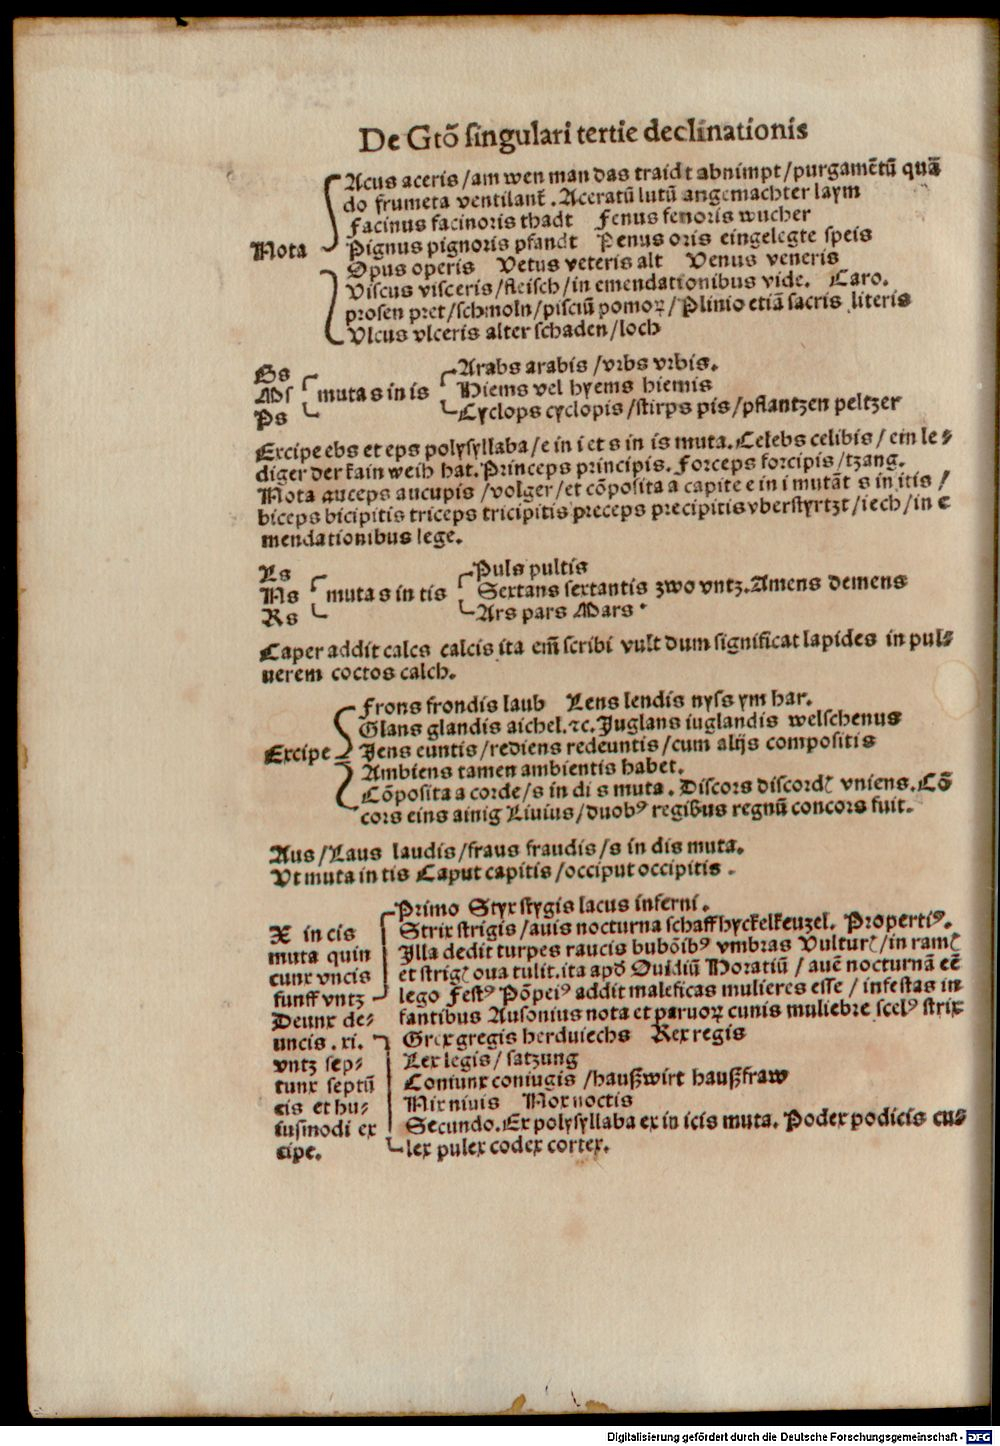 De Gtō singulari tertie declinationis
Acus aceris / am wen man das traidt abnimpt / purgamētū quā
do frumeta ventilant̄. Aceratū lutū angemachter laym
Facinus facinoris thadt Fenus fenoris wucher
Nota Pignus pignoris pfandt Penus oris eingelegte speis
Opus operis Vetus veteris alt Venus veneris
Viscus visceris / fleisch / in emendationibus vide. Caro.
prosen pret / schmoln / pisciū pomoꝝ / Plinio etiā sacris literis
Vlcus vlceris alter schaden / loch
Bs Arabs arabis / vrbs vrbis.
Ms muta s in is Hiems vel hyems hiemis
Ps Cyclops cyclopis / stirps pis / pflantzen peltzer
Excipe ebs et eps polysyllaba / e in i et s in is muta. Celebs celibis / ein le⸗
diger der kain weib hat. Princeps principis. Forceps forcipis / tzang.
Nota auceps aucupis / volger / et cōposita a capite e in i mutāt s in itis /
biceps bicipitis triceps tricipitis preceps precipitis vberstyrtzt / iech / in e
mendationibus lege.
Ls Puls pultis
Ns muta s in tis Sextans sextantis zwo vntz. Amens demens
Rs Ars pars Mars
Caper addit calcs calcis ita em̄ scribi vult dum significat lapides in pul⸗
uerem coctos calch.
Frons frondis laub Lens lendis nyss ym har.
Glans glandis aichel. ⁊c. Juglans iuglandis welschenus
Excipe Jens euntis / rediens redeuntis / cum alijs compositis
Ambiens tamen ambientis habet.
Cōposita a corde / s in di s muta. Discors discordꝭ vniens. Cō
cors eins ainig Liuius / duobꝰ regibus regnū concors fuit.
Aus / Laus laudis / fraus fraudis / s in dis muta.
Vt muta in tis Caput capitis / occiput occipitis.
Primo Styx stygis lacus inferni.
X in cis Strix strigis / auis nocturna schaffhyckelkeuzel. Propertiꝰ.
muta quin Illa dedit turpes raucis bubōibꝰ vmbras Vulturꝭ / in ramꝭ
cunx vncis et strigꝭ oua tulit. ita apd̄ Ouidiū Horatiū / auē nocturnā eē
funff vntz lego Festꝰ Pōpeiꝰ addit maleficas mulieres esse / infestas in
Deunx de⸗ fantibus Ausonius nota et paruoꝝ cunis muliebre scelꝰ strix
uncis. xi. Grex gregis herduiechs Rex regis
vntz sep⸗ Lex legis / satzung
tunx septū Coniunx coniugis / haußwirt haußfraw
cis et hu⸗ Nix niuis Nox noctis
iusmodi ex Secundo. Ex polysyllaba ex in icis muta. Podex podicis cu⸗
cipe. lex pulex codex cortex.
Digitalisierung gefördert durch die Deutsche Forschungsgemeinschaft - DFG